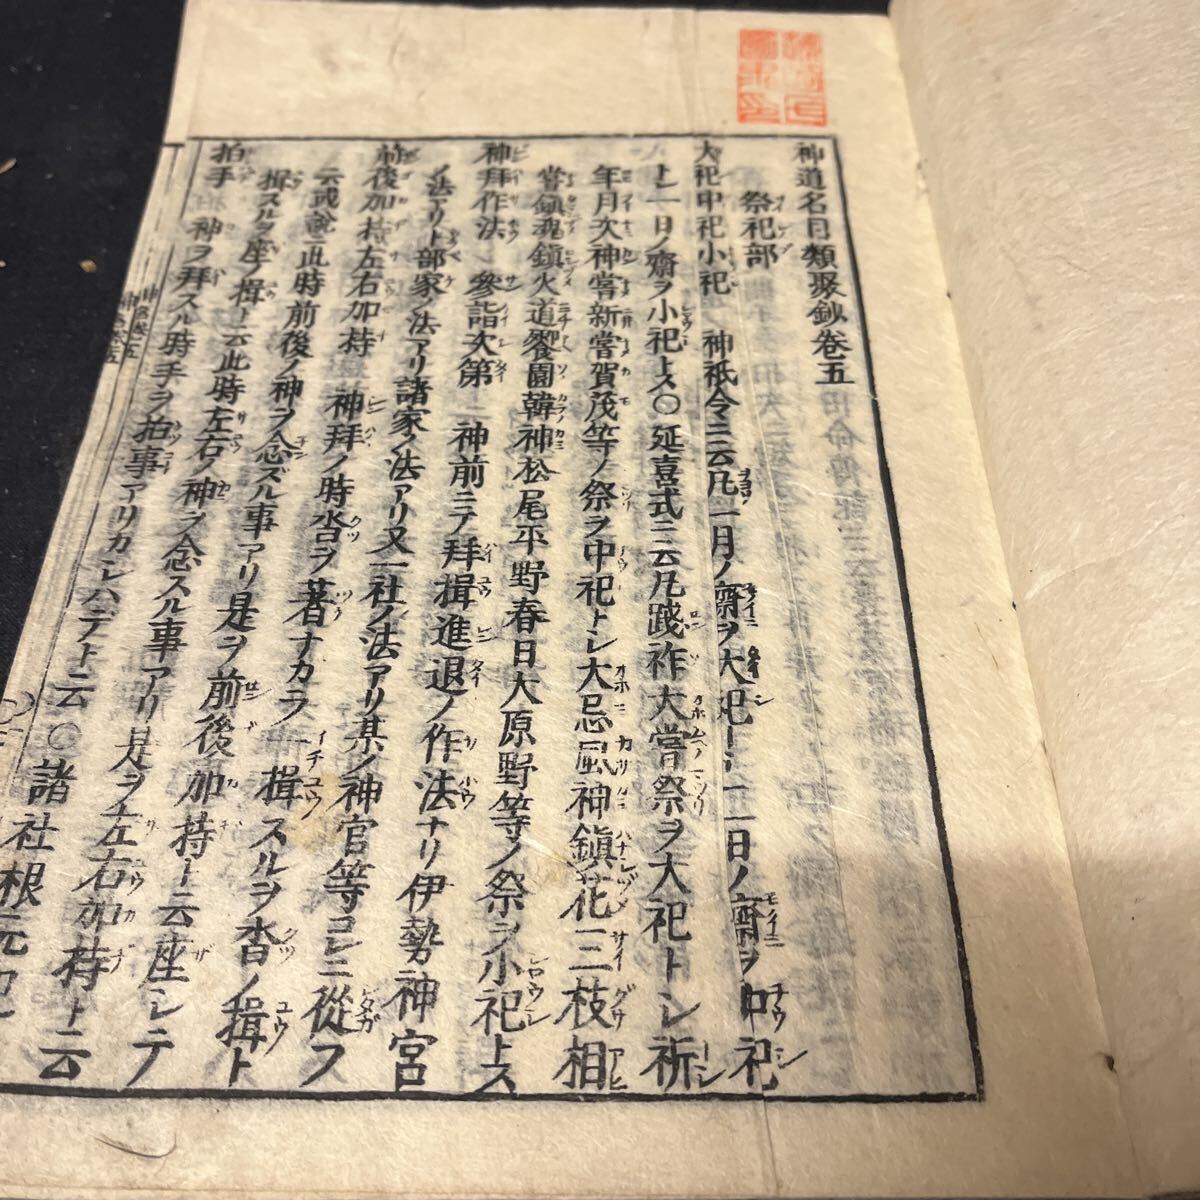 神道名目類聚鈔卷五
祭祀部
大祀中祀小祀 神祇令ニ云凡一月ノ齋ヲ大祀ト云三日ノ齋ヲ中祀
トシ一日ノ齋ヲ小祀トス〇延喜式ニ云凡踐祚大嘗祭ヲ大祀トシ祈
年月次神嘗新嘗賀茂等ノ祭ヲ中祀トシ大忌風神鎮花三枝相
嘗鎮魂鎮火道饗園韓神松尾平野春日大原野等ノ祭ヲ小祀トス
神拜作法 參詣次第 神前ニテ拜揖進退ノ作法ナリ伊勢神宮
ノ法アリト部家ノ法アリ諸家ノ法アリ又一社ノ法アリ某ノ神官等コレニ從フ
前後加持左右加持 神拜ノ時沓ヲ著ナカラ一揖スルヲ沓ノ揖ト
云或說ニ此時前後ノ神ヲ念ズル事アリ是ヲ前後加持ト云座シテ
揖スルヲ座ノ揖ト云此時左右ノ神ヲ念スル事アリ是ヲ左右加持ト云
拍手 神ヲ拜スル時手ヲ拍事アリカシハデト云〇諸社根元記